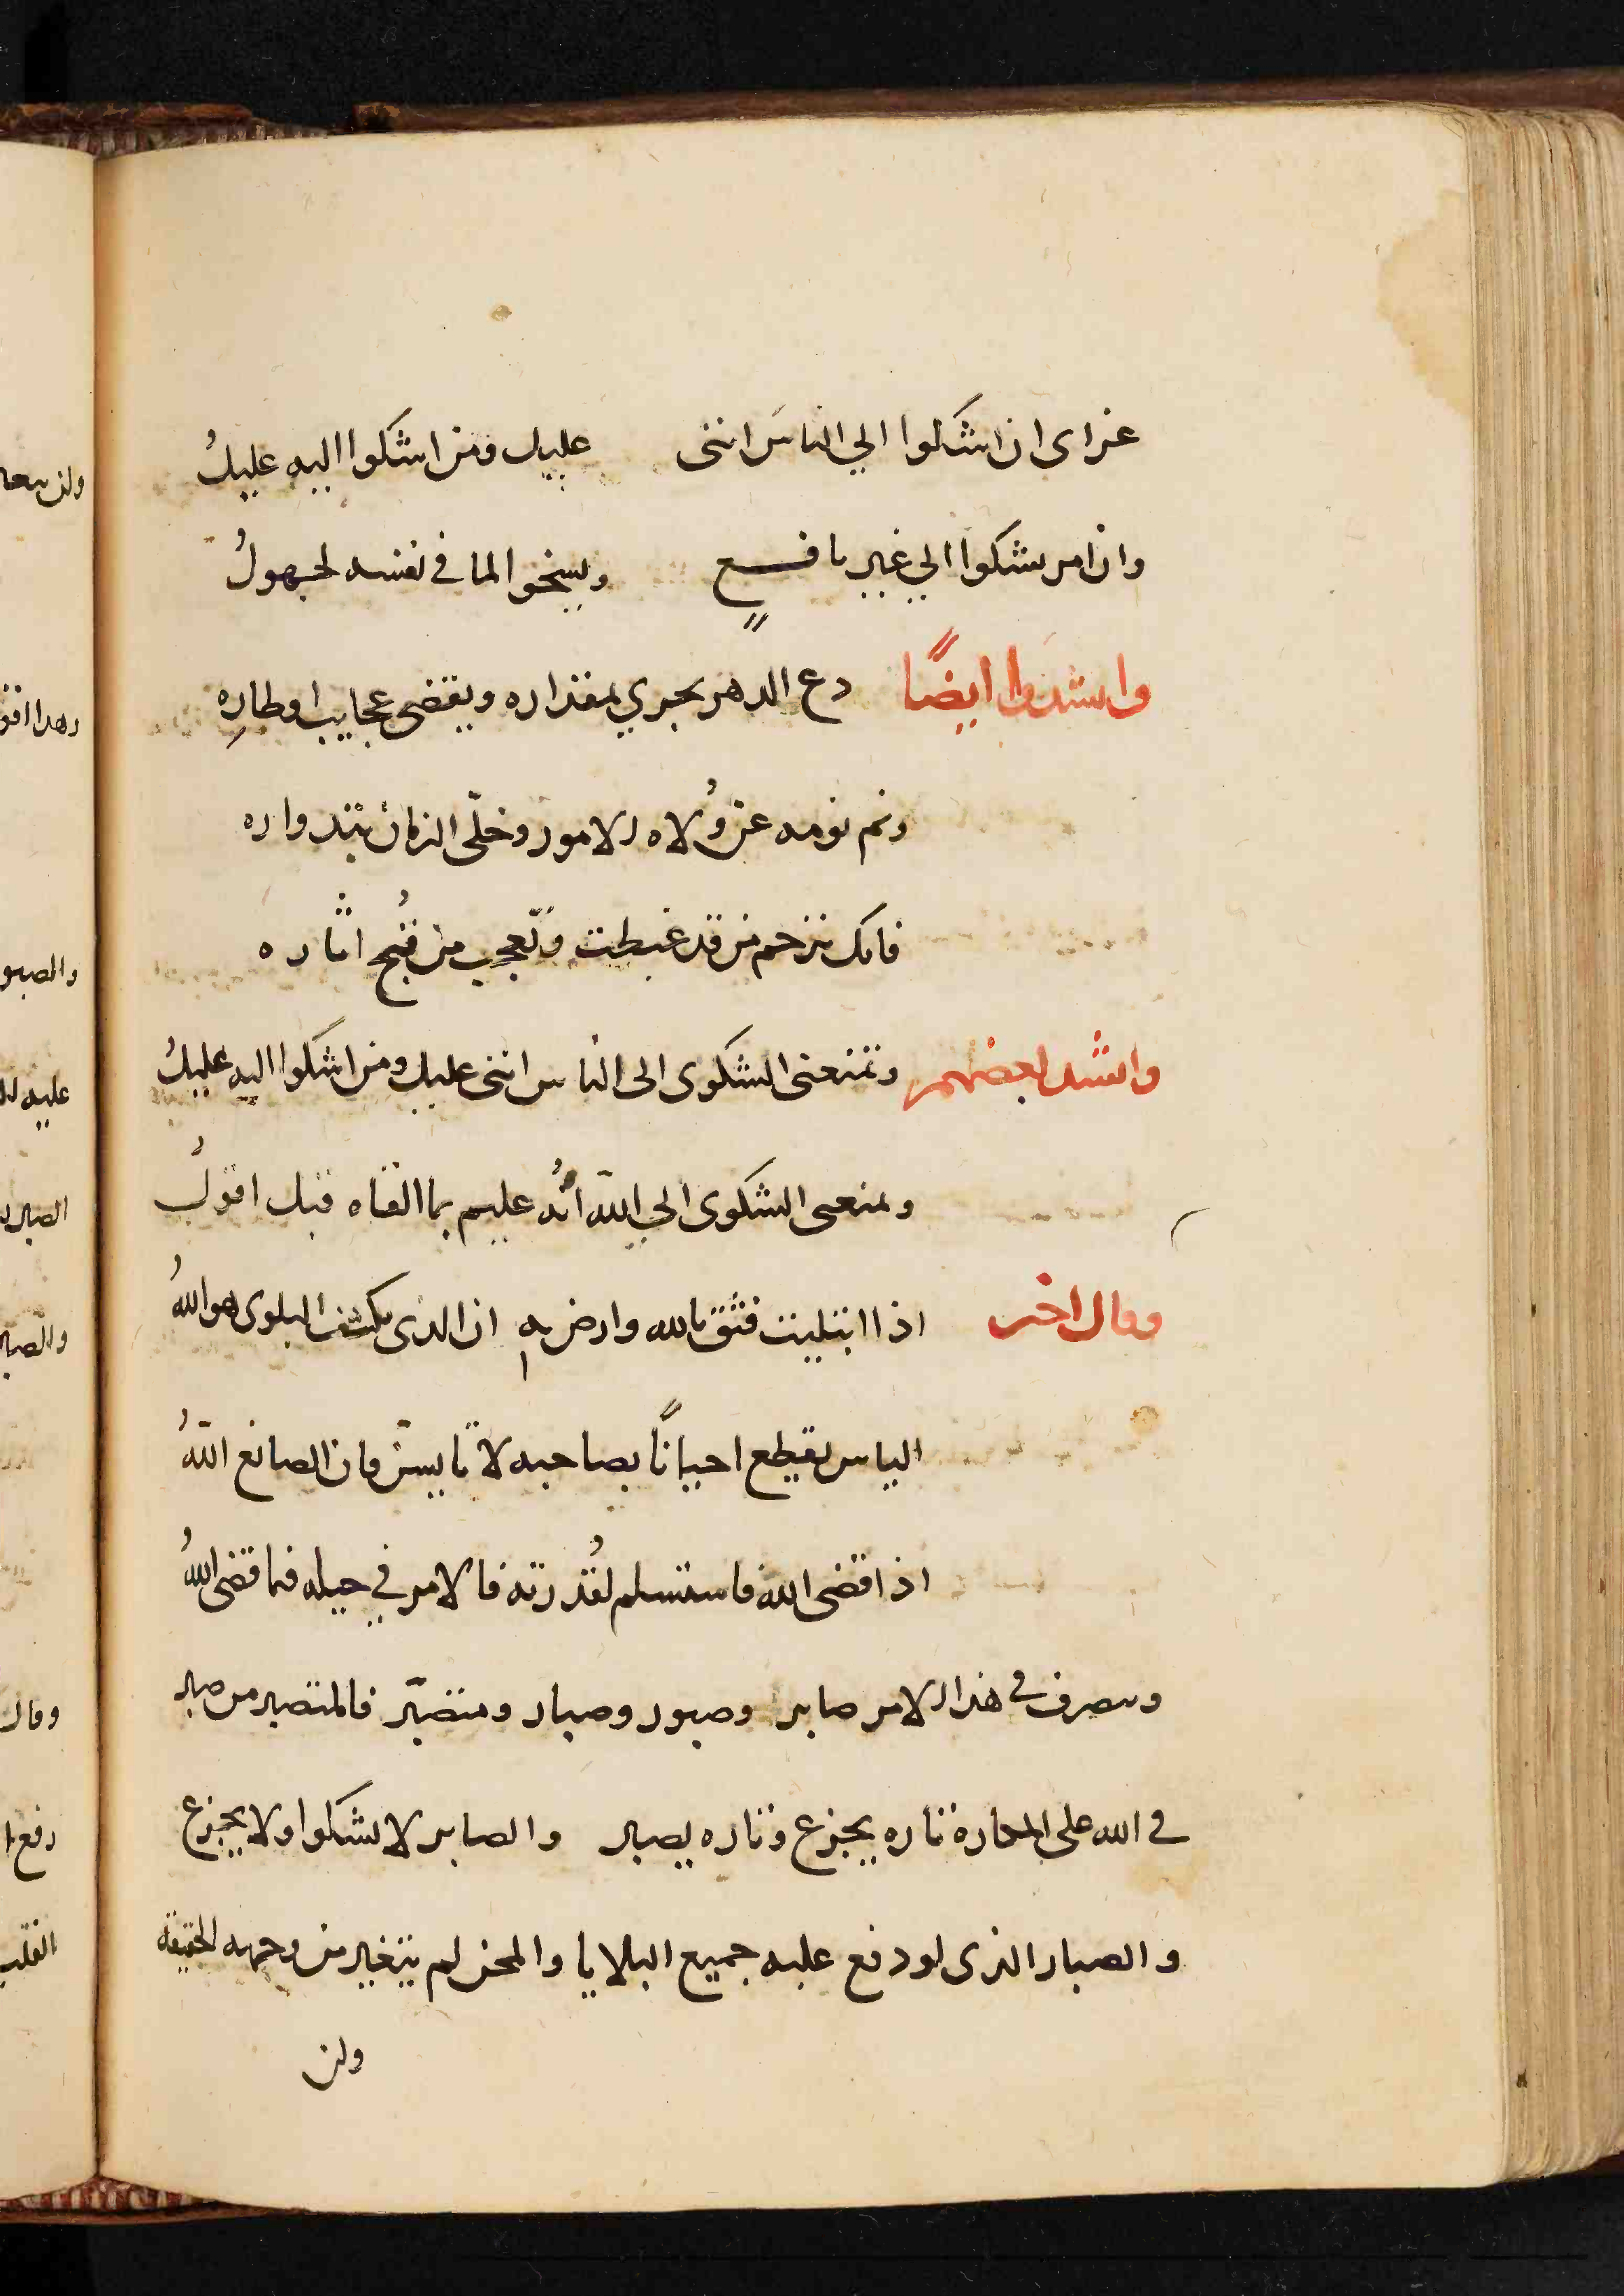 عزاى ان اشكوا الي الناسَ اننى عليل ومن اشكوا اليه عليلُ
وان امر يشكوا الي غير نافــــعٍ ويسخوا لما في نفسه لجهولُ
وانشدوا ايضًا دع الدهر يجري بمقداره ويقضى عجايب اوطارِه
ونم نومه عن وُلاه الامور وخلّى الزمان بتدواره
فانك ترحم من قد غبطت وتعجب من قُبح اثاره
وانشد بعضهم وتمنعنى الشكوى الى الناس اننى عليل ومن اشكوا اليه عليلُ
ويمنعنى الشكوى الي الله انُه عليم بما القاه قبل اقولُ
وقال اخر اذا ابتليت فثق بالله وارض به ان الذى يكشف البلوى هو اللهُ
الياس يقطع احيانًا بصاحبه لا تايسن فان الصانع اللهُ
اذا قضى الله فاستسلم لقُدرته فالامر في حيله فما قضى اللهُ
وتصرف في هذا الامر صابر وصبور وصبار ومتصبّر فالمتصبر من صبر
في الله على المكاره تاره يجزع وتاره يصبر والصابر لا يشكوا ولا يجزع
والصبار الذى لو دفع عليه جميع البلايا والمحن لم يتغير من وجهه الحقيقه
ولن